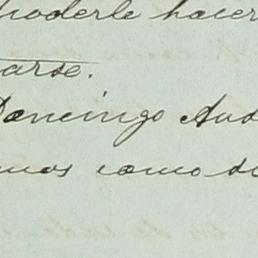 poderle hacer
arse.
Domingo And
mos como de